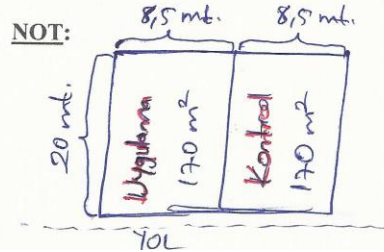 8,5 mt. 8,5 mt.
NOT:
20 mt.
Uygulama
170 m²
Kontrol
170 m²
YOL